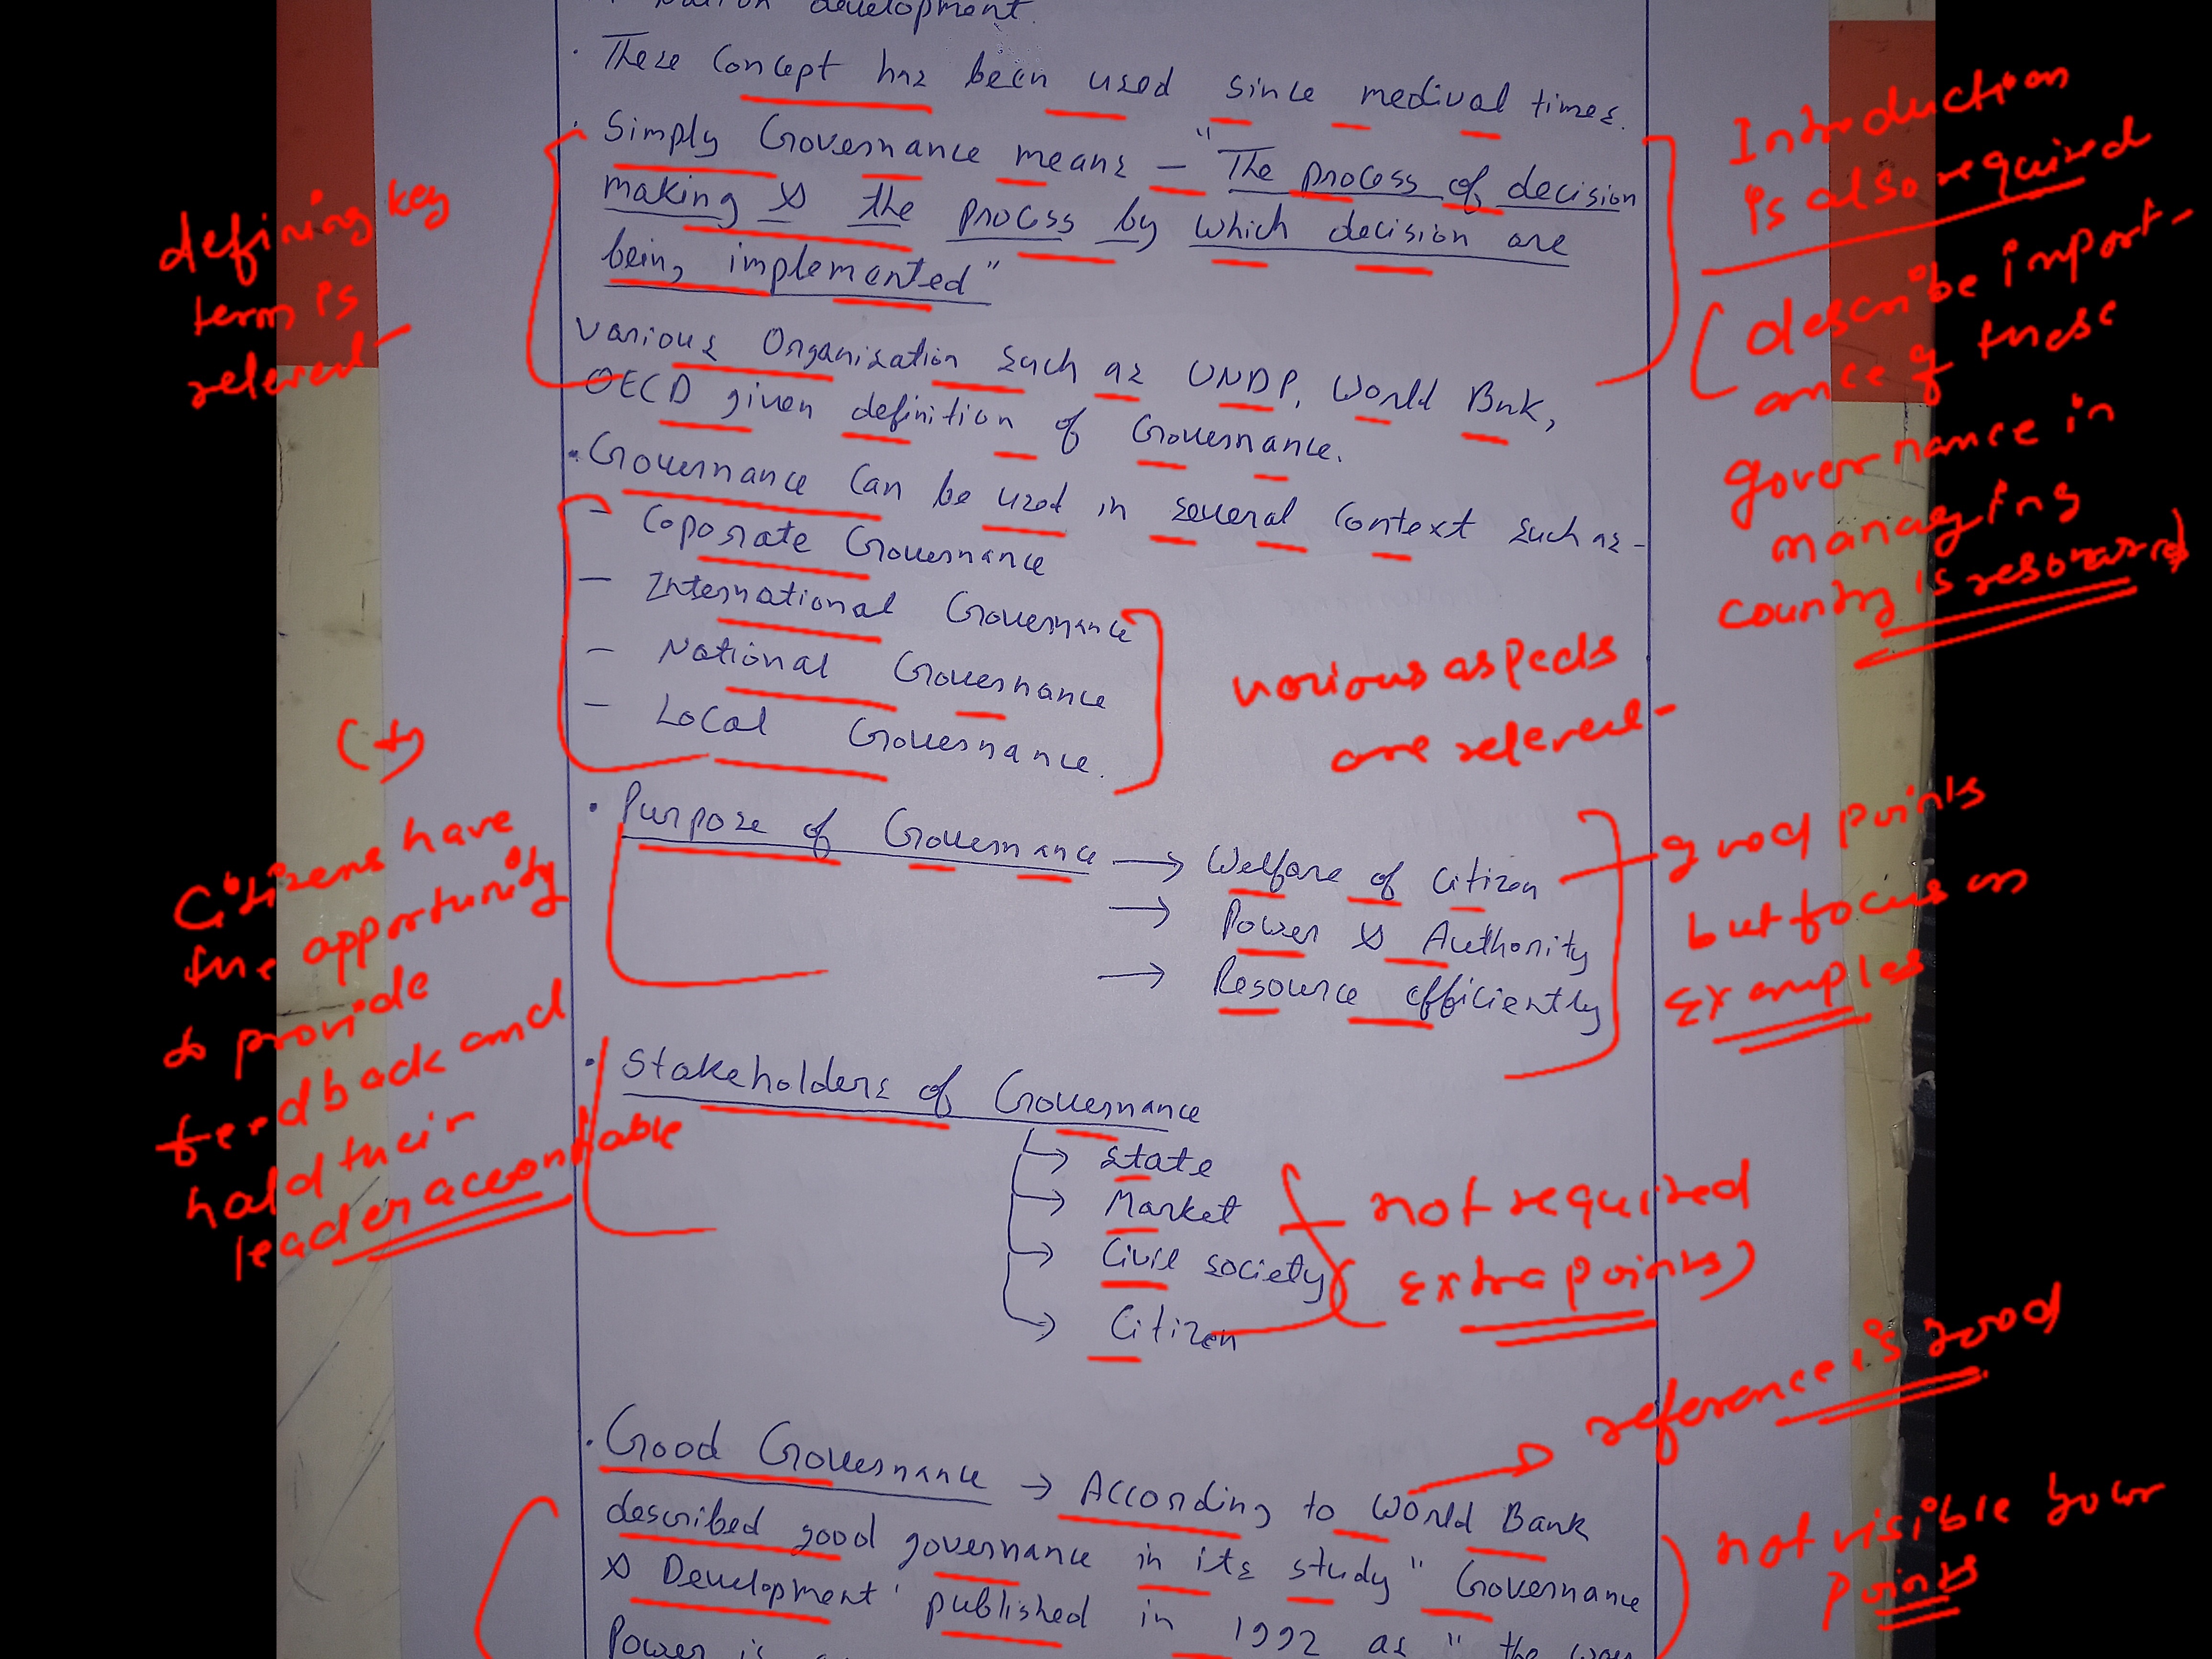 Nation development.
· These Concept has been used since medival times.
· Simply Governance means – "The process of decision
making & the process by which decision are
being implemented"
Various Organisation such as UNDP, World Bnk,
OECD given definition of Governance.
· Governance Can be used in several Context such as -
- Coporate Governance
- International Governance
- National Governance
- Local Governance.
· Purpose of Governance → Welfare of Citizen
→ Power & Authority
→ Resource efficiently
· Stakeholders of Governance
→ State
→ Market
→ Civil society
→ Citizen
· Good Governance → According to World Bank
described good governance in its study "Governance
& Development' published in 1992 as " the way
Power is
defining key
term is
relevant
(+)
Citizens have
the opportunity
to provide
feedback and
hold their
leader accountable
Introduction
is also required
(describe import-
ance of these
governance in
managing
country is resources)
various aspects
are relevant
good points
but focus on
examples
not required
(extra points)
reference is good
not visible your
points